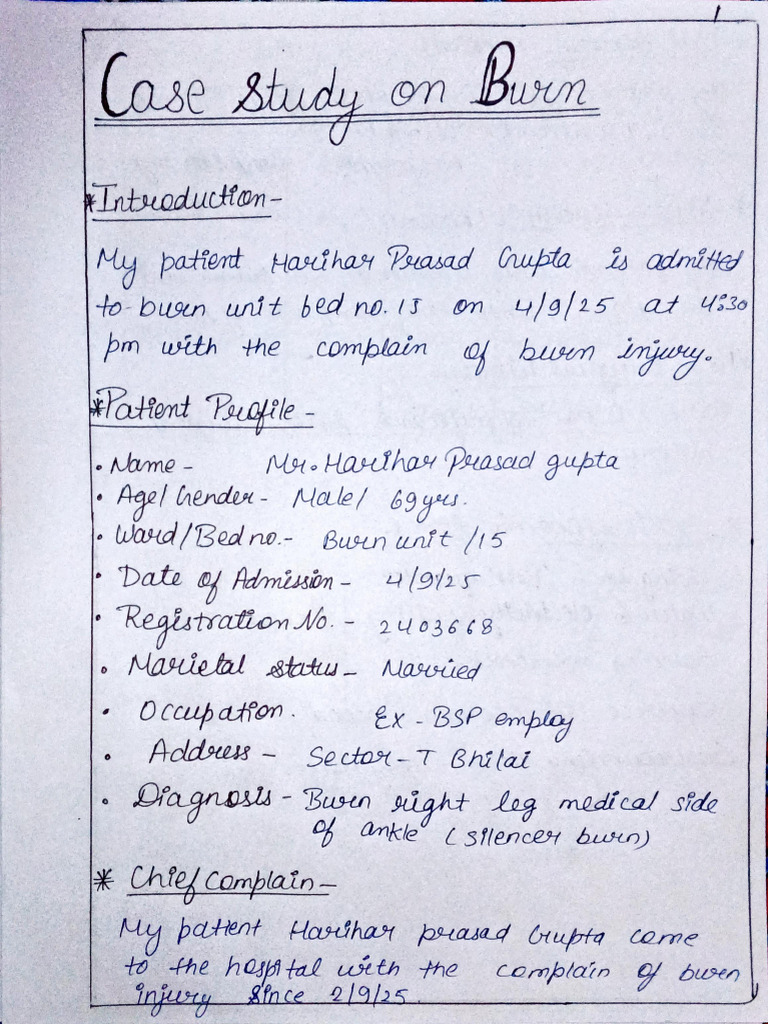 1
Case study on Burn
*Introduction-
My patient Harihar Prasad Gupta is admitted
to burn unit bed no. 15 on 4/9/25 at 4:30
pm with the complain of burn injury.
*Patient Profile -
• Name - Mr. Harihar Prasad gupta
• Age/Gender - Male/ 69yrs.
• Ward/Bed no.- Burn unit /15
• Date of Admission - 4/9/25
• Registration No. - 2403668
• Marietal status - Married
• Occupation. Ex - BSP employ
• Address - Sector - 7 Bhilai
• Diagnosis - Burn right leg medical side
of ankle (silencer burn)
* Chief Complain -
My patient Harihar prasad Grupta come
to the hospital with the complain of burn
injury since 2/9/25.